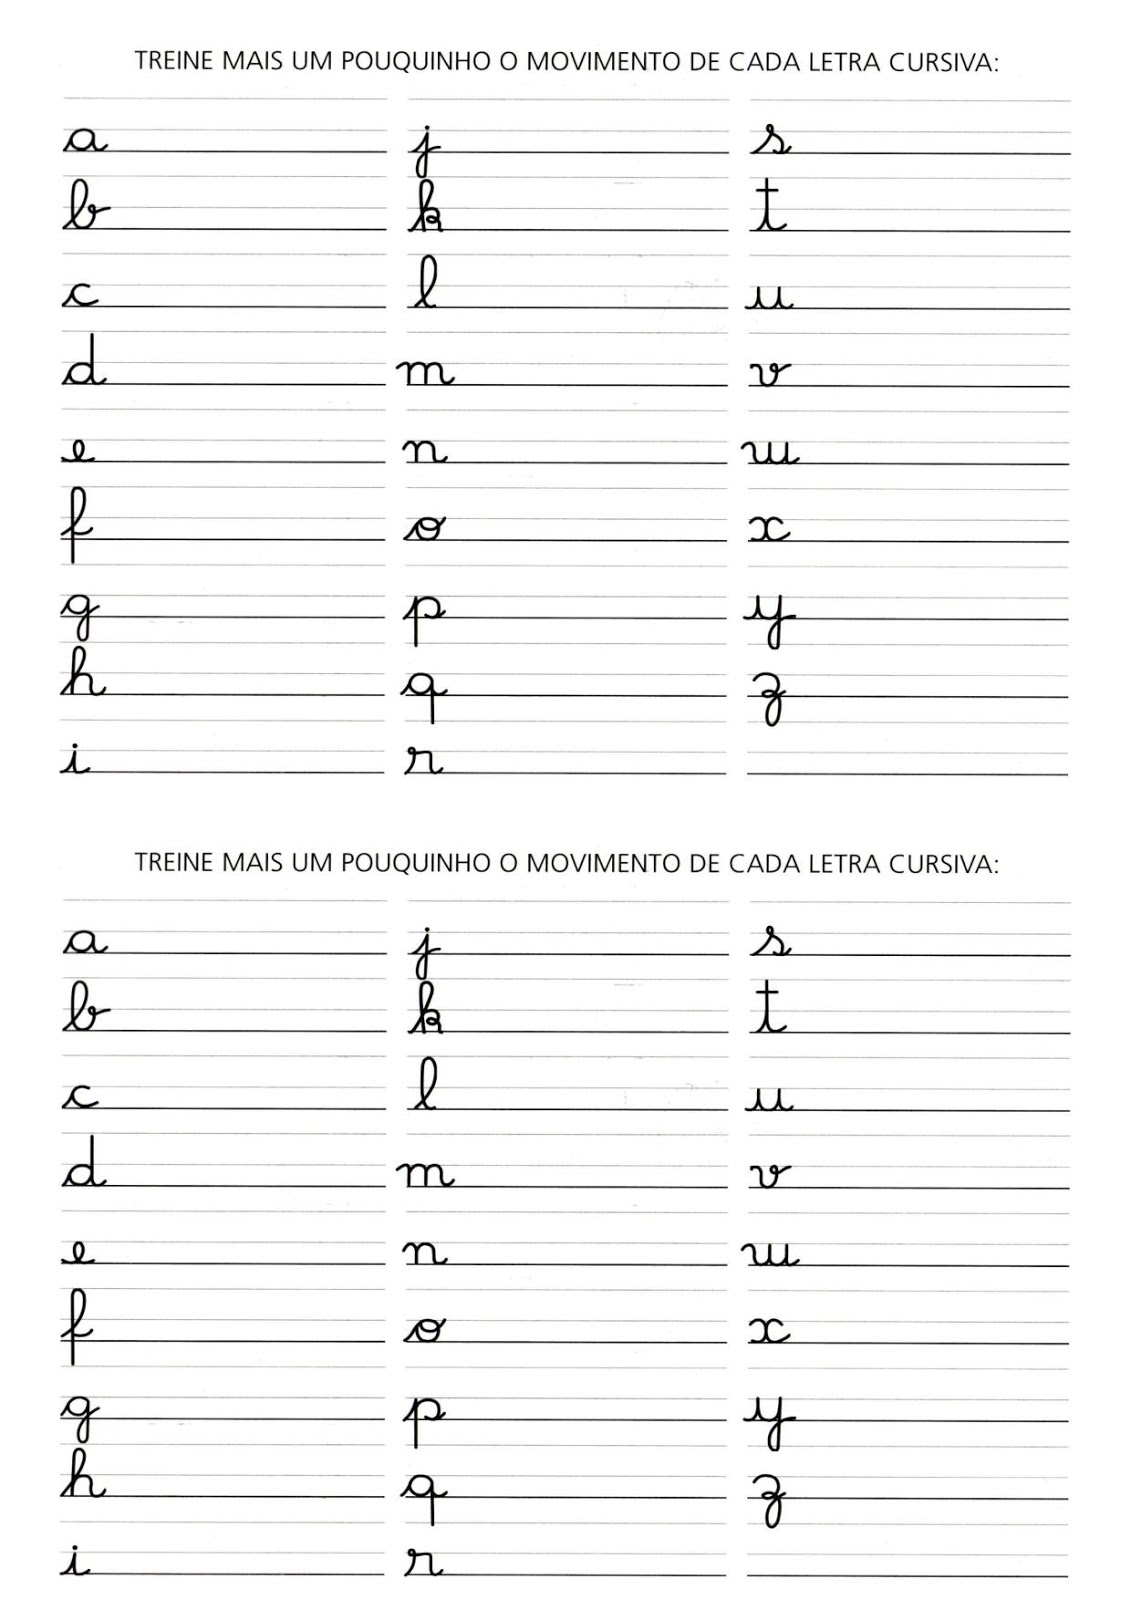 TREINE MAIS UM POUQUINHO O MOVIMENTO DE CADA LETRA CURSIVA:
a j s
b k t
c l u
d m v
e n w
f o x
g p y
h q z
i r
TREINE MAIS UM POUQUINHO O MOVIMENTO DE CADA LETRA CURSIVA:
a j s
b k t
c l u
d m v
e n w
f o x
g p y
h q z
i r